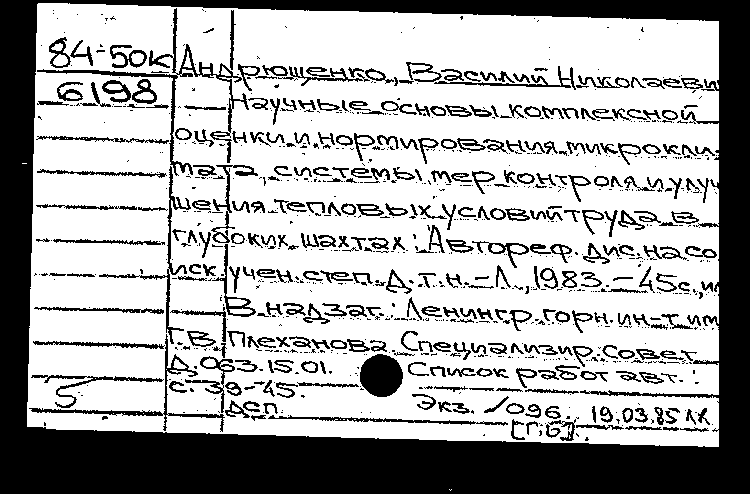 84-50к Андрющенко, Василий Николаеви
6198 Научные основы комплексной
оценки и нормирования микрокли-
мата, системы мер контроля и улуч
шения тепловых условий труда в
глубоких шахтах: Автореф. дис. на со
иск. учен. степ. д.т.н. - Л., 1983. - 45с., ил
В надзаг.: Ленингр. горн. ин-т им
Г.В. Плеханова. Специализир. совет
Д.063.15.01. Список работ авт.:
5 с. 39-45.
дсп. Экз. 096. 19.03.85
[ГБ].